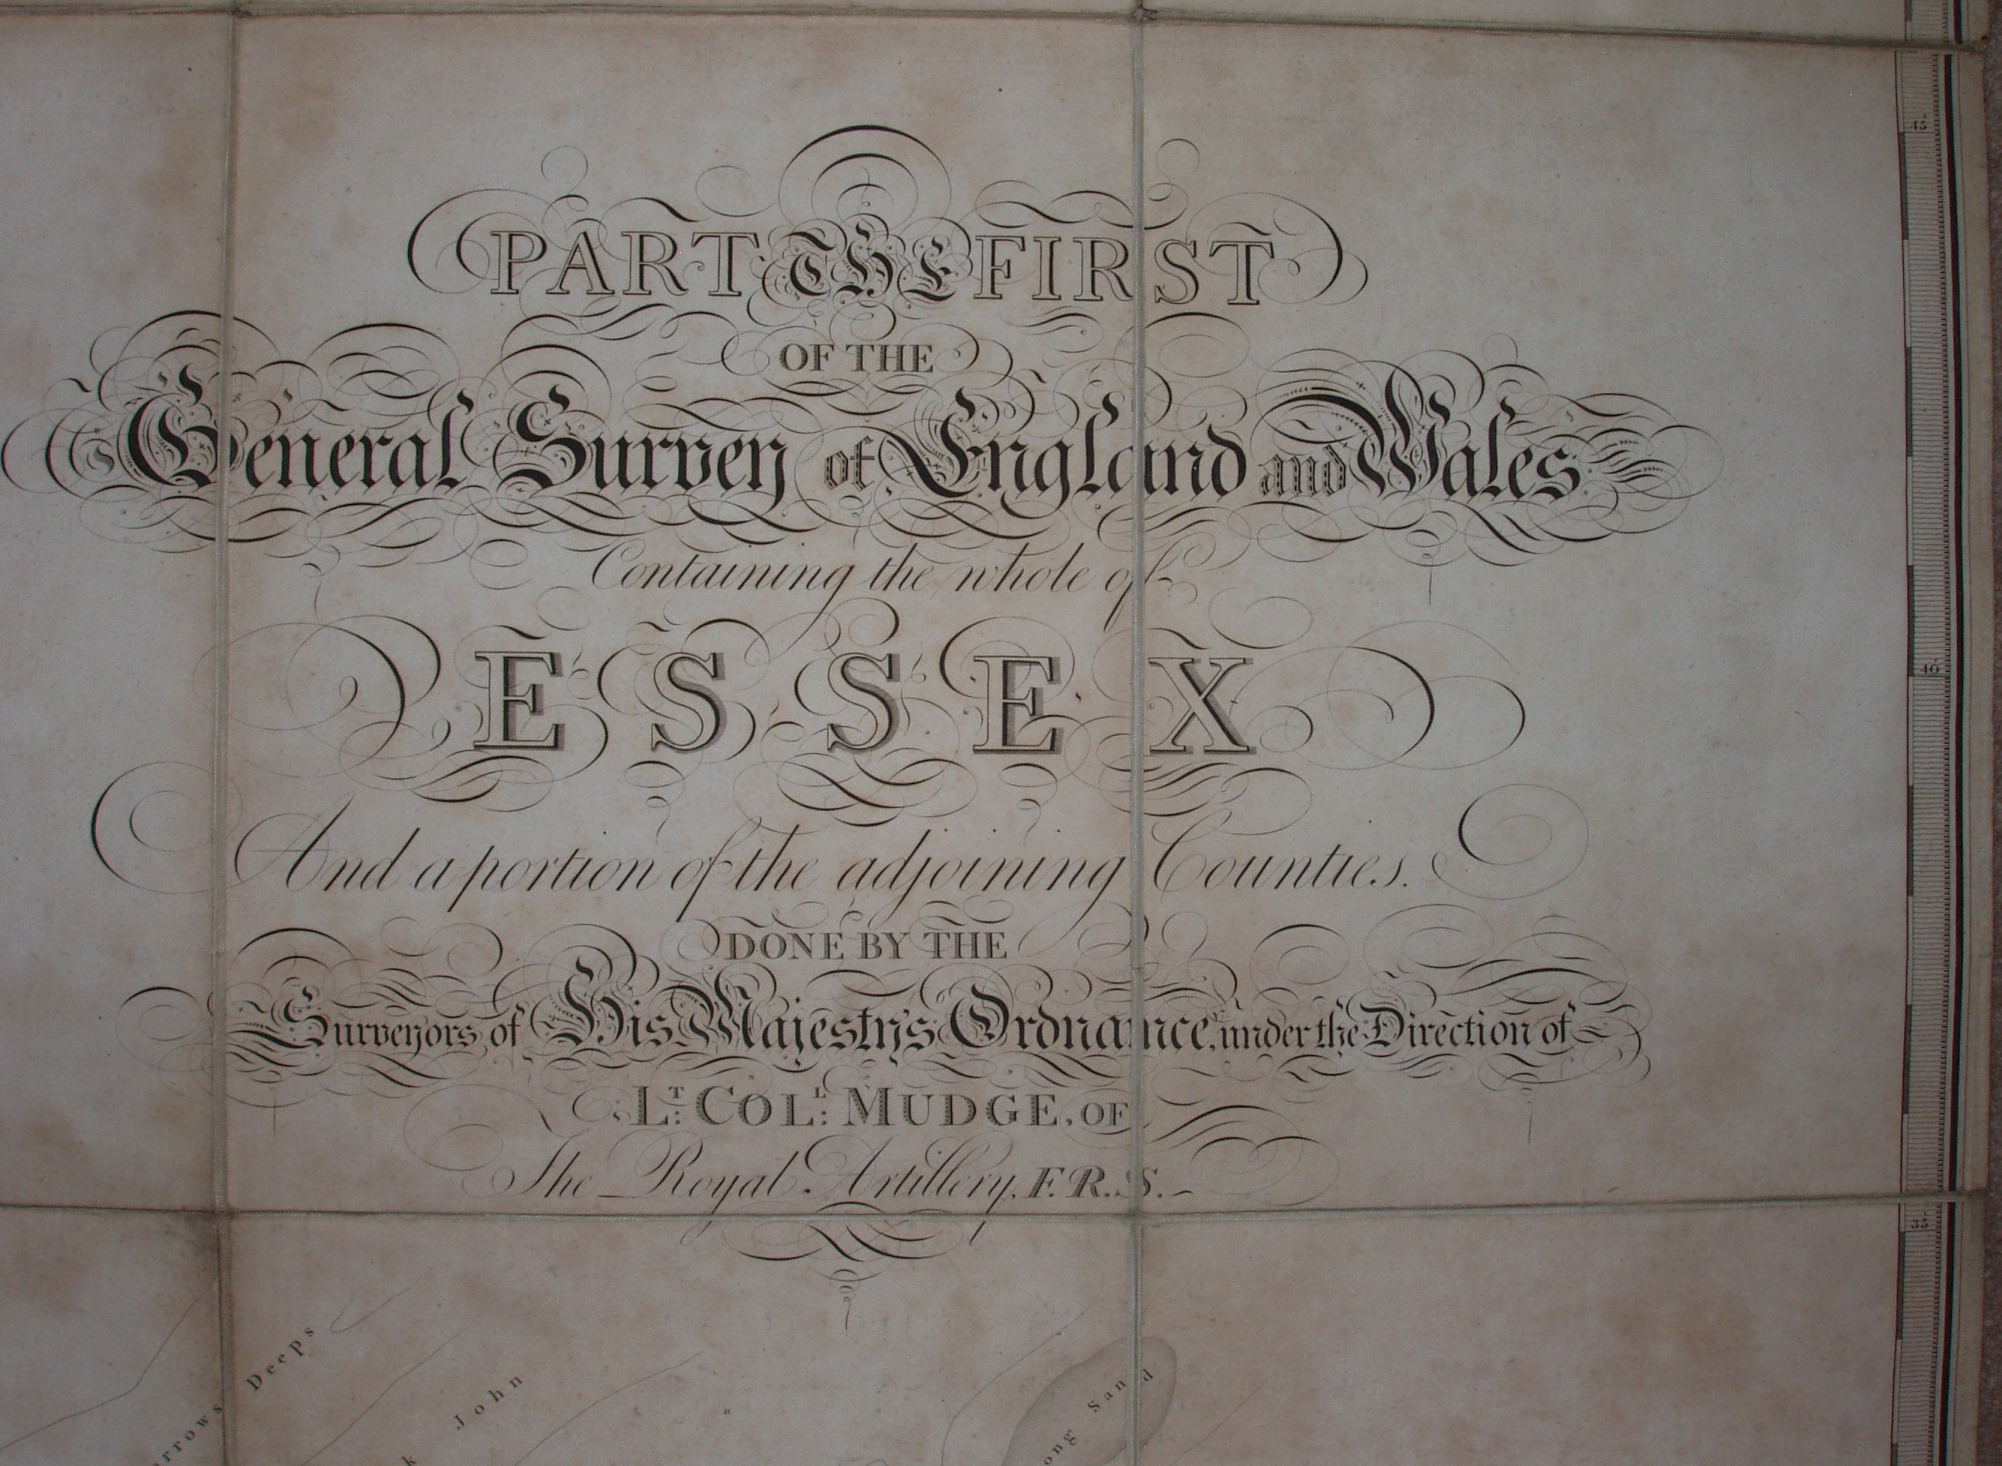 PART THE FIRST
OF THE
General Survey of England and Wales
Containing the whole of
ESSEX
And a portion of the adjoining Counties.
DONE BY THE
Surveyors of His Majesty's Ordnance, under the Direction of
LT: COLL: MUDGE, OF
The Royal Artillery, F.R.S.
45
40
35
Deeps
John
Sand